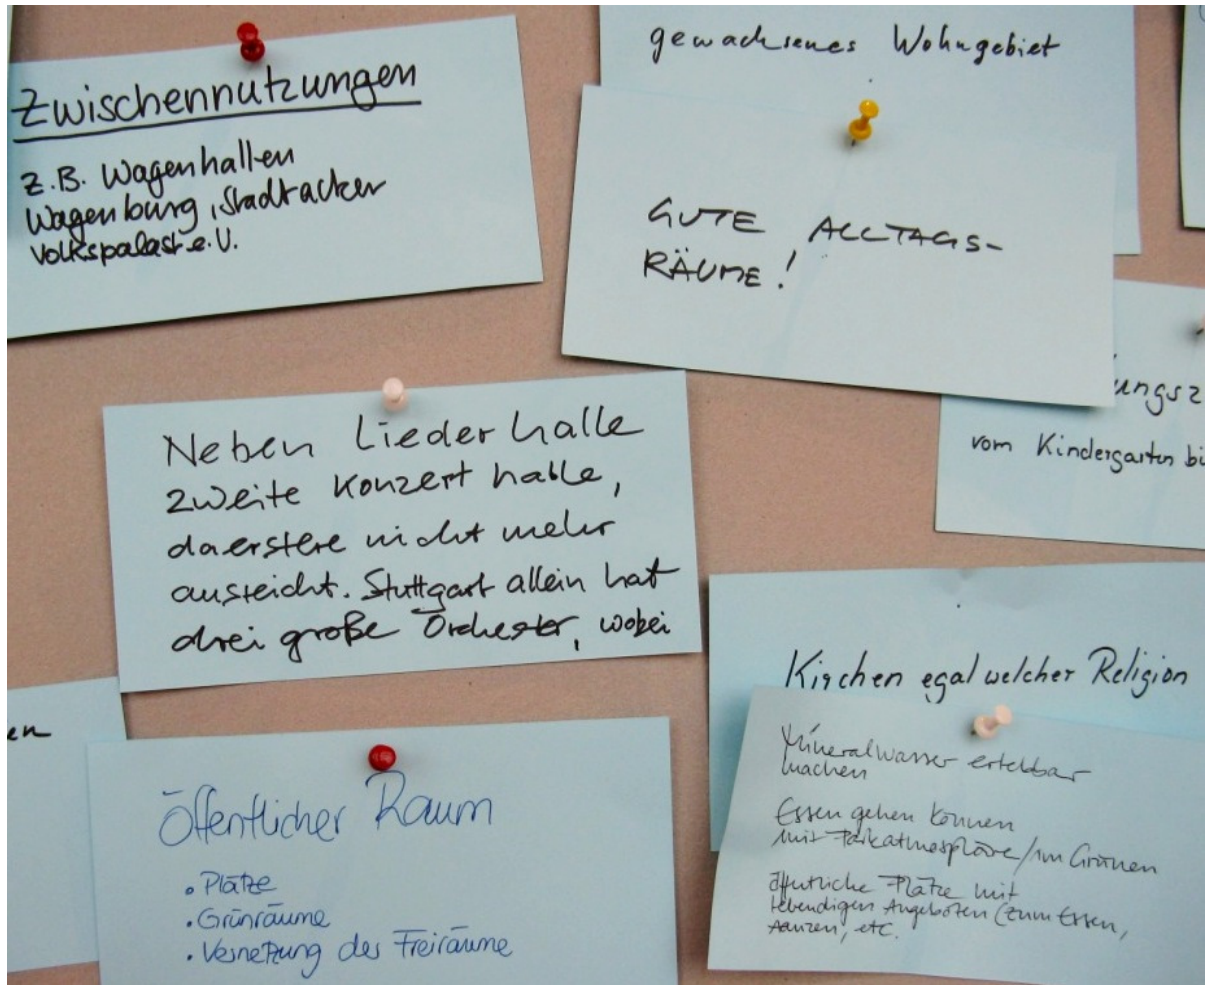 Zwischennutzungen
z.B. Wagenhallen
Wagenburg, Stadtacker
Volkspalast e.V.
gewachsenes Wohngebiet
GUTE ALLTAGS-
RÄUME!
ungsz
vom Kindergarten bi
Neben Liederhalle
zweite Konzerthalle,
da erstere nicht mehr
ausreicht. Stuttgart allein hat
drei große Orchester, wobei
Kirchen egal welcher Religion
en
Öffentlicher Raum
• Plätze
• Grünräume
• Vernetzung der Freiräume
Mineralwasser erlebbar
machen
Essen gehen können
mit Parkatmosphäre/im Grünen
öffentliche Plätze mit
lebendigen Angeboten (zum Essen,
Tanzen, etc.